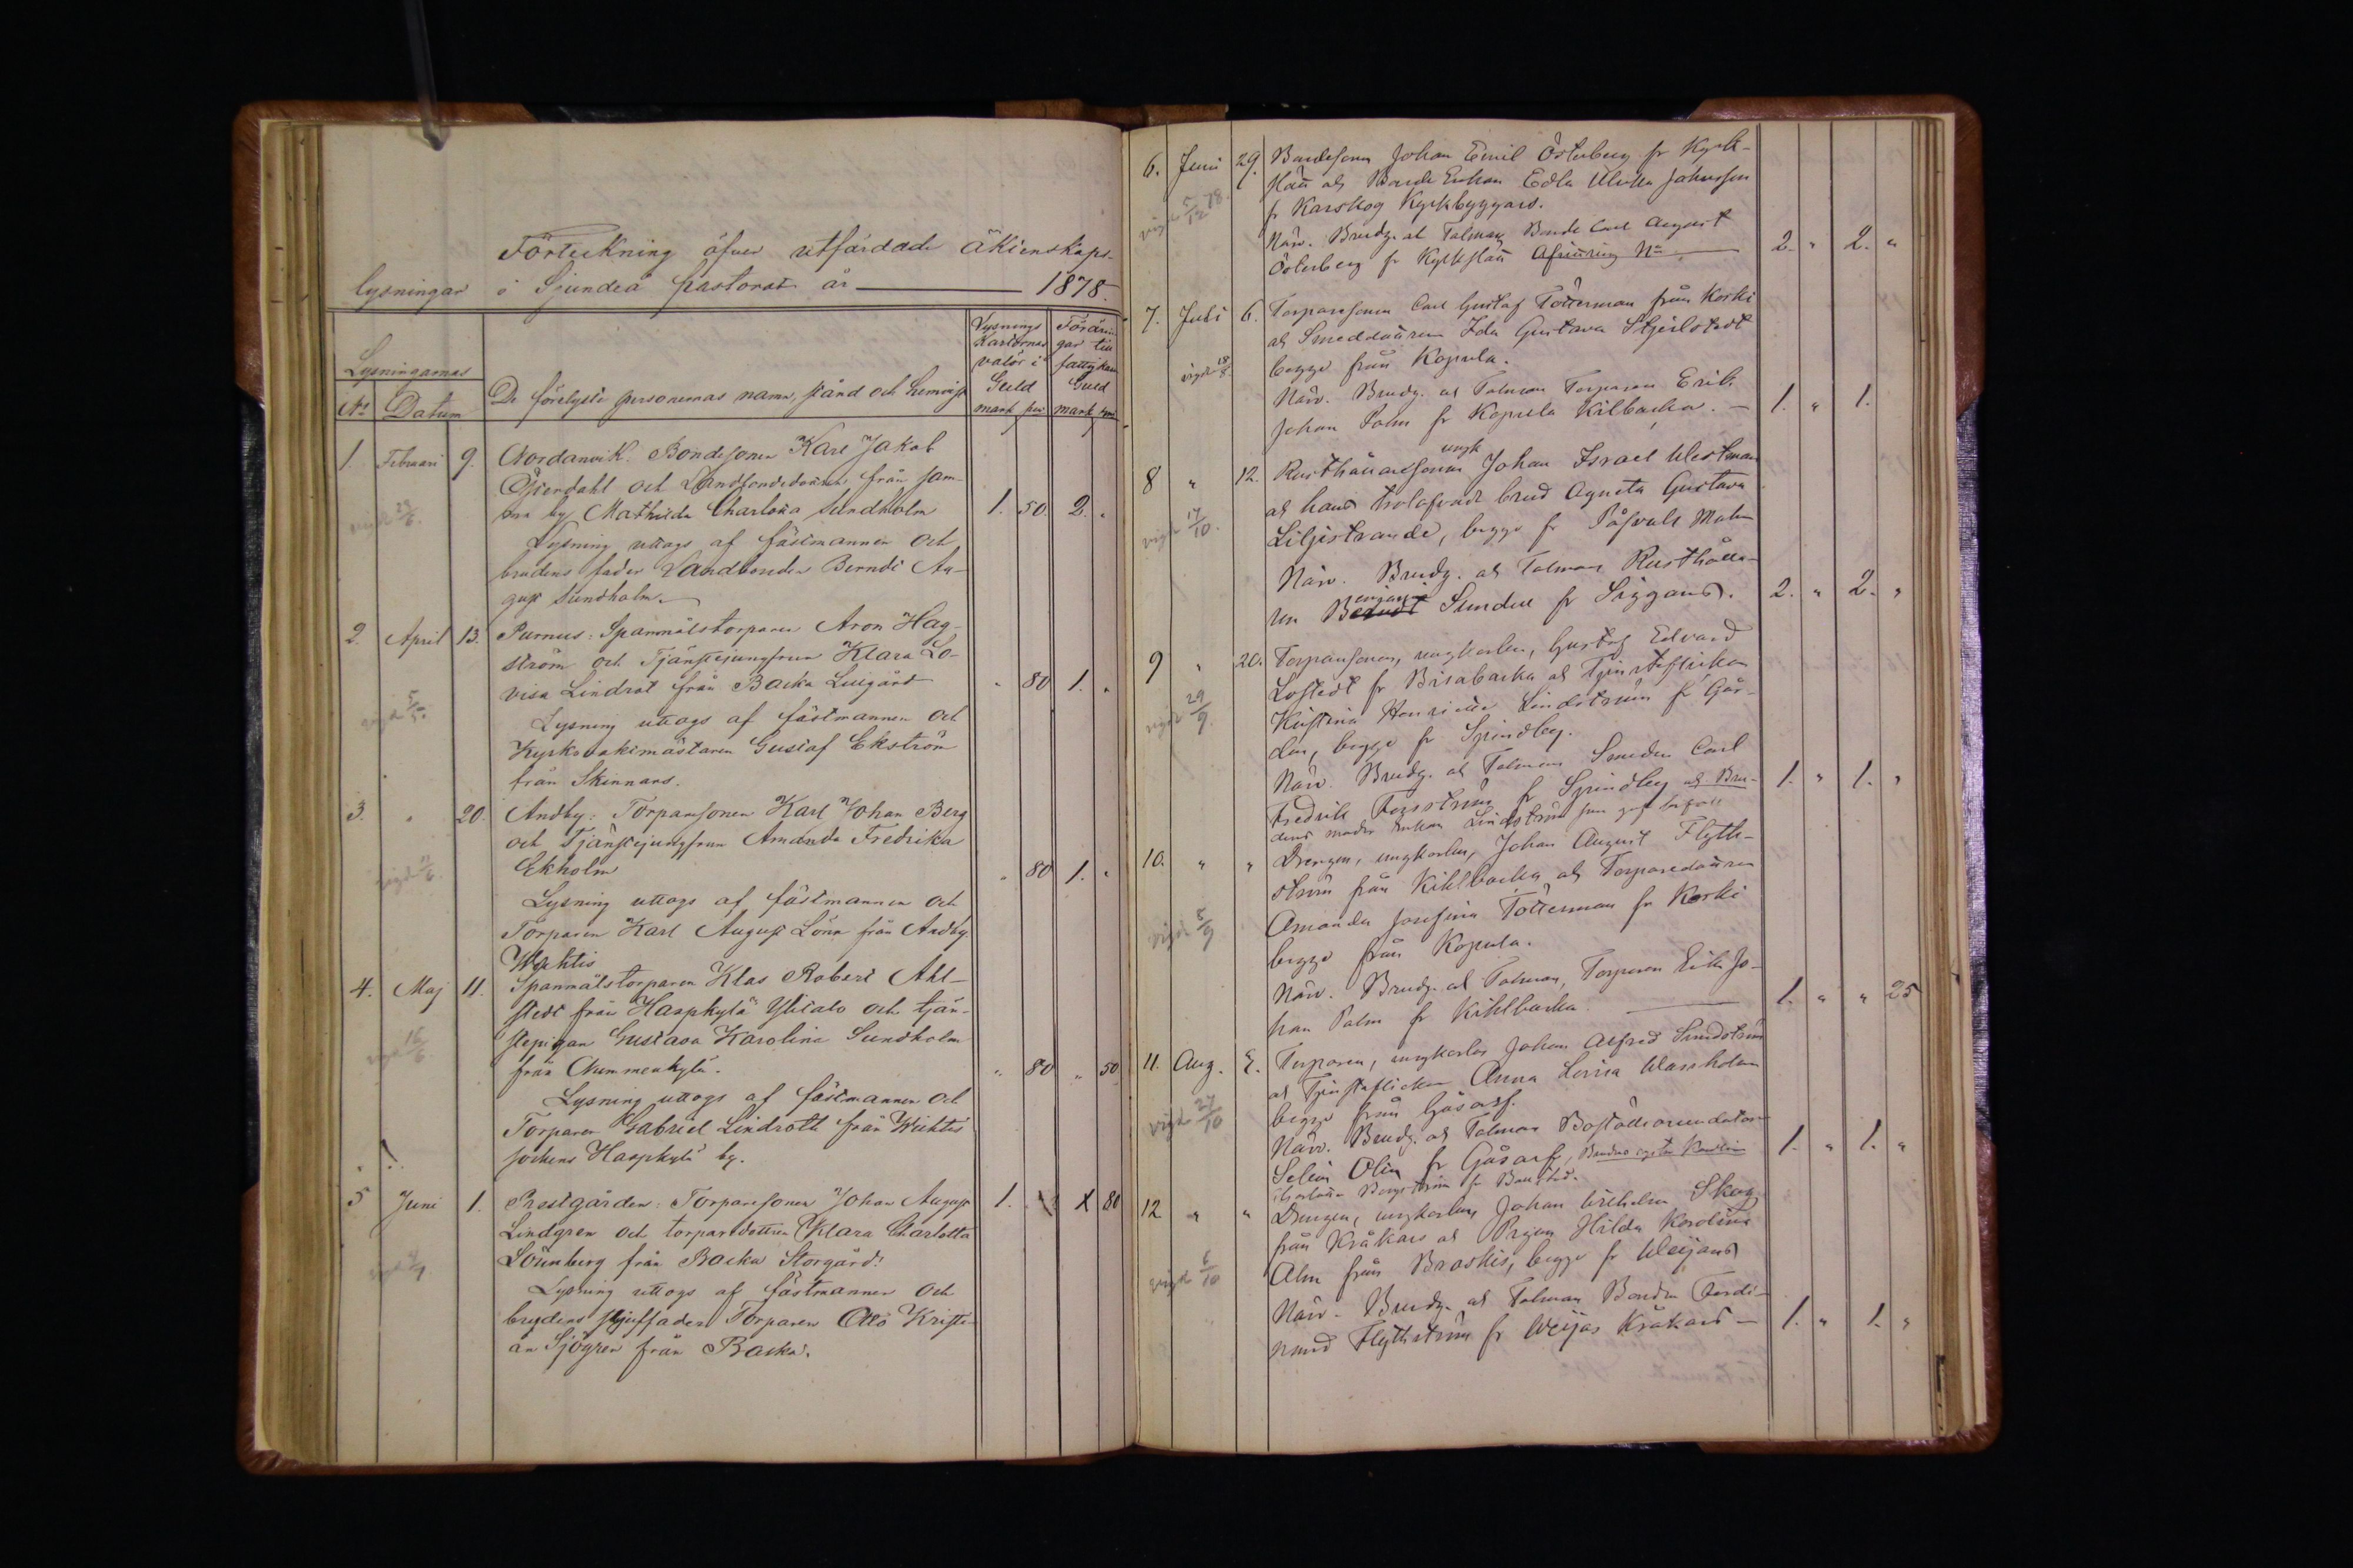 Förteckning öfver utfärdade äktenskaps-
lysningar i Sjundeå pastorat år 1878.
Lysningarnas
No Datum
De förelyste personernas namn, stånd och hemvist
Lysnings
kartornas
valör i
Guld
mark pen
Förärin
gar till
fattigkass
Guld
mark pen
1. Februari 9. Nordanvik. Bondesonen Karl Jakob
Österdahl och Landbondedottren från sam-
ma by Mathilda Charlotta Sundholm 1. 50 2. "
Lysning uttogs af fästmannen och
brudens fader Landbonden Berndt Au-
gust Sundholm.
2. April 13. Purnus: Spanmålstorparen Aron Hag-
ström och Tjänstejungfrun Klara Lo-
visa Lindrot från Backa Lillgård " 80 1. "
vigd 5/5.
Lysning uttogs af fästmannen och
Kyrkovaktmästaren Gustaf Ekström
från Skinnars.
3. " 20. Andby: Torparesonen Karl Johan Berg
och Tjänstejungfrun Amanda Fredrika
Ekholm " 80 1. "
Lysning uttogs af fästmannen och
Torparen Karl August Lönn från Andby
Wichtis
4. Maj 11. Spanmålstorparen Klas Robert Ahl-
stedt från Haapkylä Ylitalo och tjän-
stepigan Gustava Karolina Sundholm
vigd 16/6.
från Nummenkylä. " 80 " 50
Lysning uttogs af fästmannen och
Torparen Gabriel Lindroth från Wichtis
sockens Haapkylä by.
5 Juni 1. Prestgården: Torparesonen Johan August 1. 80
Lindgren och torparedottren Klara Charlotta
Lönnberg från Backa Storgård.
Lysning uttogs af fästmannen och
brudens styffader Torparen Otto Kristi-
an Sjögren från Backa.
6. Juni 29. Bondesonen Johan Emil Österberg fr Kyrk-
slätt och Bonde Enkan Edla Ulrika Johansson
vigd 5/12 78.
fr Karskog Kyrkbyggars.
Närv. Brudg. och Talman Bonde Carl August
Österberg fr Kyrkslätt 2. " 2. "
7. Juli 6. Torparesonen Carl Gustaf Tötterman från Korki
och Smeddottren Ida Gustava Stjerlstedt
begge från Kopula.
Närv. Brudg. och Talman Torparen Erik
Johan Palm fr Kopula Kilbacka. 1. " 1.
8 " 12. Rusthållaresonen ungk Johan Israel Westman
och hans trolofvade brud Agneta Gustava
vigd 17/10.
Liljestrande, begge fr Påfvals Malm
Närv. Brudg. och Talman Rusthålla-
ren Benjamin Sundell fr Siggans. 2. " 2. "
9 " 20. Torparesonen, ungkarlen, Gustaf Edvard
Lofstedt fr Brisabacka och Tjensteflickan
vigd 29/9.
Kristina Henrietta Lindström fr Går-
den, begge fr Spindleg.
Närv. Brudg. och Talman Smeden Carl
Fredrik Forsström fr Spindleg och Bru- 1. " 1. "
dens moder Enkan Lindström som gaf bifall
10. " " Drengen, ungkarlen, Johan August Flyth-
ström från Kihlbacka och Torparedottren
vigd 5/9
Amanda Josefina Tötterman fr Korki
begge från Kopula.
Närv. Brudg. och Talman, Torparen Erik Jo-
han Palm fr Kihlbacka 1. " " 25
11. Aug. Torparen, ungkarlen Johan Alfred Sundström
och Tjensteflickan Anna Lovisa Wassholm
vigd 27/10
begge från Gåsarf.
Närv. Brudg. och Talman Boställsarrendator
Selim Olin fr Gåsarf, Brudens syster 1. " 1. "
Charlotta Bergström fr
12 " " Drengen, ungkarlen Johan Wilhelm Skog
från Kråkars och Pigan Hilda Karolina
vigd 6/10
Alm från Broskis, begge fr Weijans
Närv. Brudg. och Talman Bonden Ferdi-
nand Flythström fr Weijas Kråkars 1. " 1. "